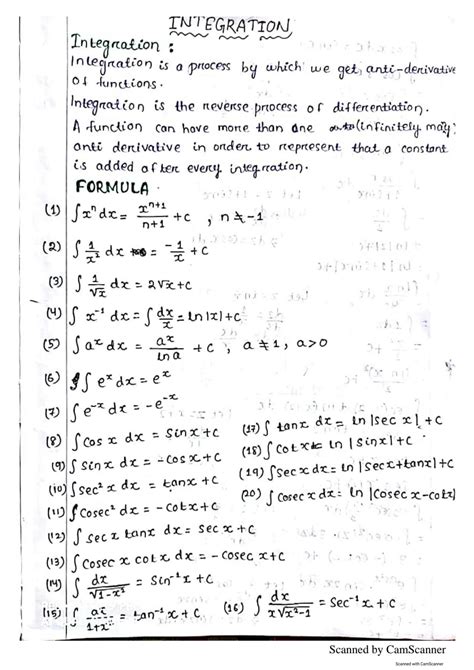 INTEGRATION
Integration :
Integration is a process by which we get, anti-derivative
of functions.
Integration is the reverse process of differentiation.
A function can have more than one (infinitely many)
anti derivative in order to represent that a constant
is added after every integration.
FORMULA.
(1) ∫xⁿ dx = xⁿ⁺¹/n+1 + c , n ≠ -1
(2) ∫ 1/x² dx = -1/x + c
(3) ∫ 1/√x dx = 2√x + c
(4) ∫ x⁻¹ dx = ∫ dx/x = ln |x| + c
(5) ∫ aˣ dx = aˣ/ln a + c , a ≠ 1, a>0
(6) ∫ eˣ dx = eˣ
(7) ∫ e⁻ˣ dx = -e⁻ˣ
(8) ∫ cos x dx = sin x + c
(9) ∫ sin x dx = -cos x + c
(10) ∫ sec² x dx = tanx + c
(11) ∫ cosec² dx = -cot x + c
(12) ∫ sec x tanx dx = sec x + c
(13) ∫ cosec x cot x dx = -cosec x + c
(14) ∫ dx/√1-x² = sin⁻¹ x + c
(15) ∫ dx/1+x² = tan⁻¹ x + c
(16) ∫ dx/x√x²-1 = sec⁻¹ x + c
(17) ∫ tanx dx = ln |sec x| + c
(18) ∫ cot x = ln |sinx| + c
(19) ∫ sec x dx = ln |secx + tanx| + c
(20) ∫ cosec x dx = ln |cosec x - cotx|
Scanned by CamScanner
Scanned with CamScanner